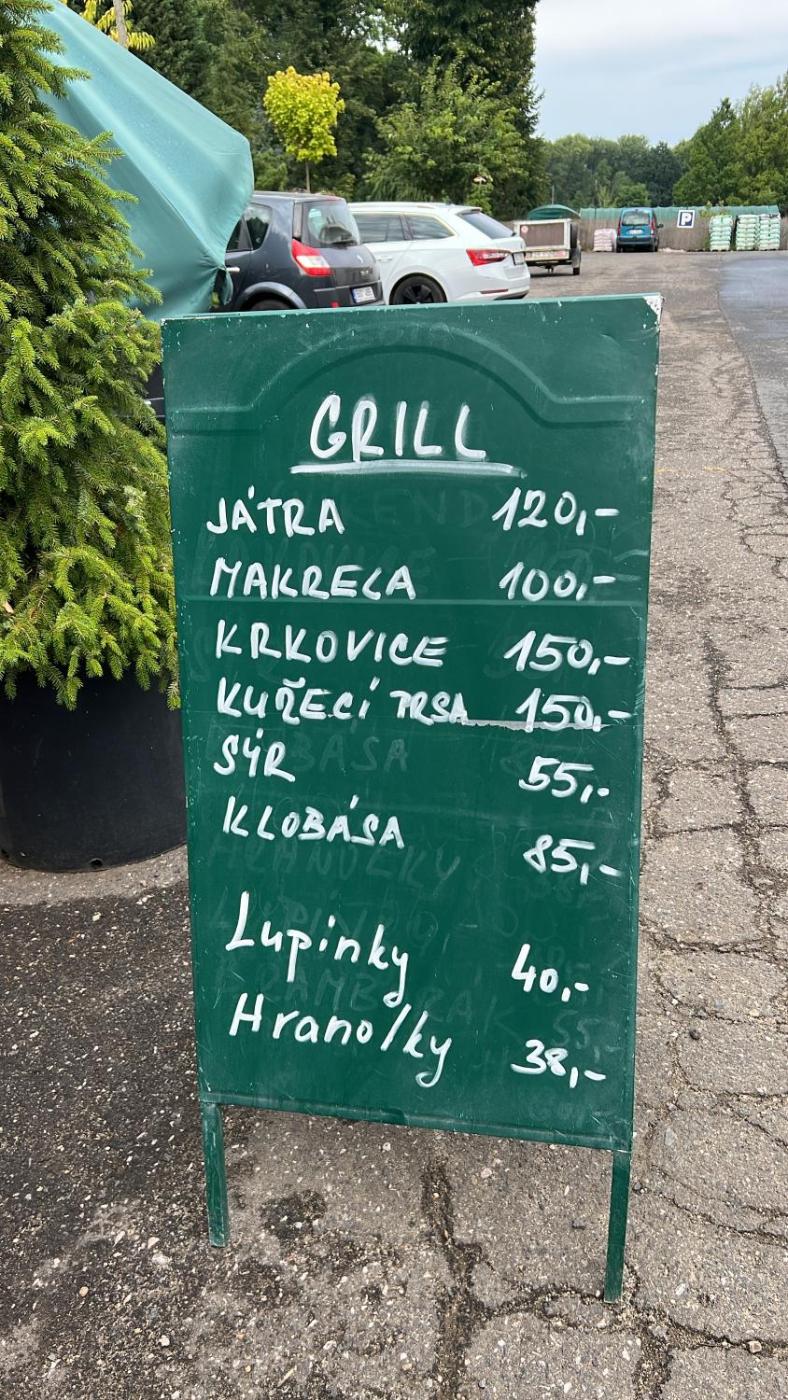 GRILL
JÁTRA 120,-
MAKRELA 100,-
KRKOVICE 150,-
KUŘECÍ PRSA 150,-
SÝR 55,-
KLOBÁSA 85,-
Lupínky 40,-
Hranolky 38,-
P